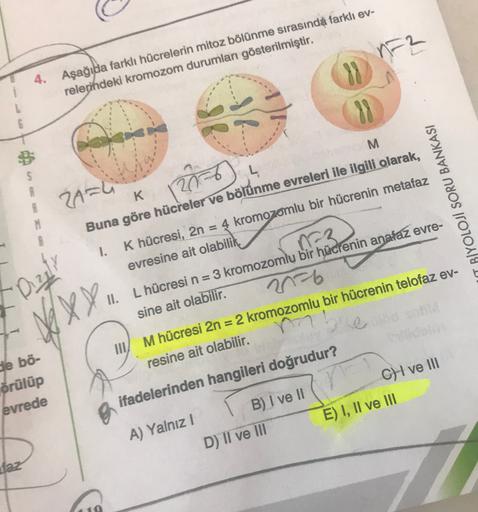 4. Aşağıda farklı hücrelerin mitoz bölünme sırasında farklı ev-
relerindeki kromozom durumları gösterilmiştir.
n=2
2n=4 K
2n=6 L
M
Buna göre hücreler ve bölünme evreleri ile ilgili olarak,
I. K hücresi, 2n = 4 kromozomlu bir hücrenin metafaz
evresine ait olabilir.
n=3
II. L hücresi n = 3 kromozomlu bir hücrenin anafaz evre-
sine ait olabilir.
2n=6
III. M hücresi 2n = 2 kromozomlu bir hücrenin telofaz ev-
resine ait olabilir.
ifadelerinden hangileri doğrudur?
A) Yalnız I
B) I ve II
C) I ve III
D) II ve III
E) I, II ve III
BİYOLOJİ SORU BANKASI
de bö-
örülüp
evrede
faz